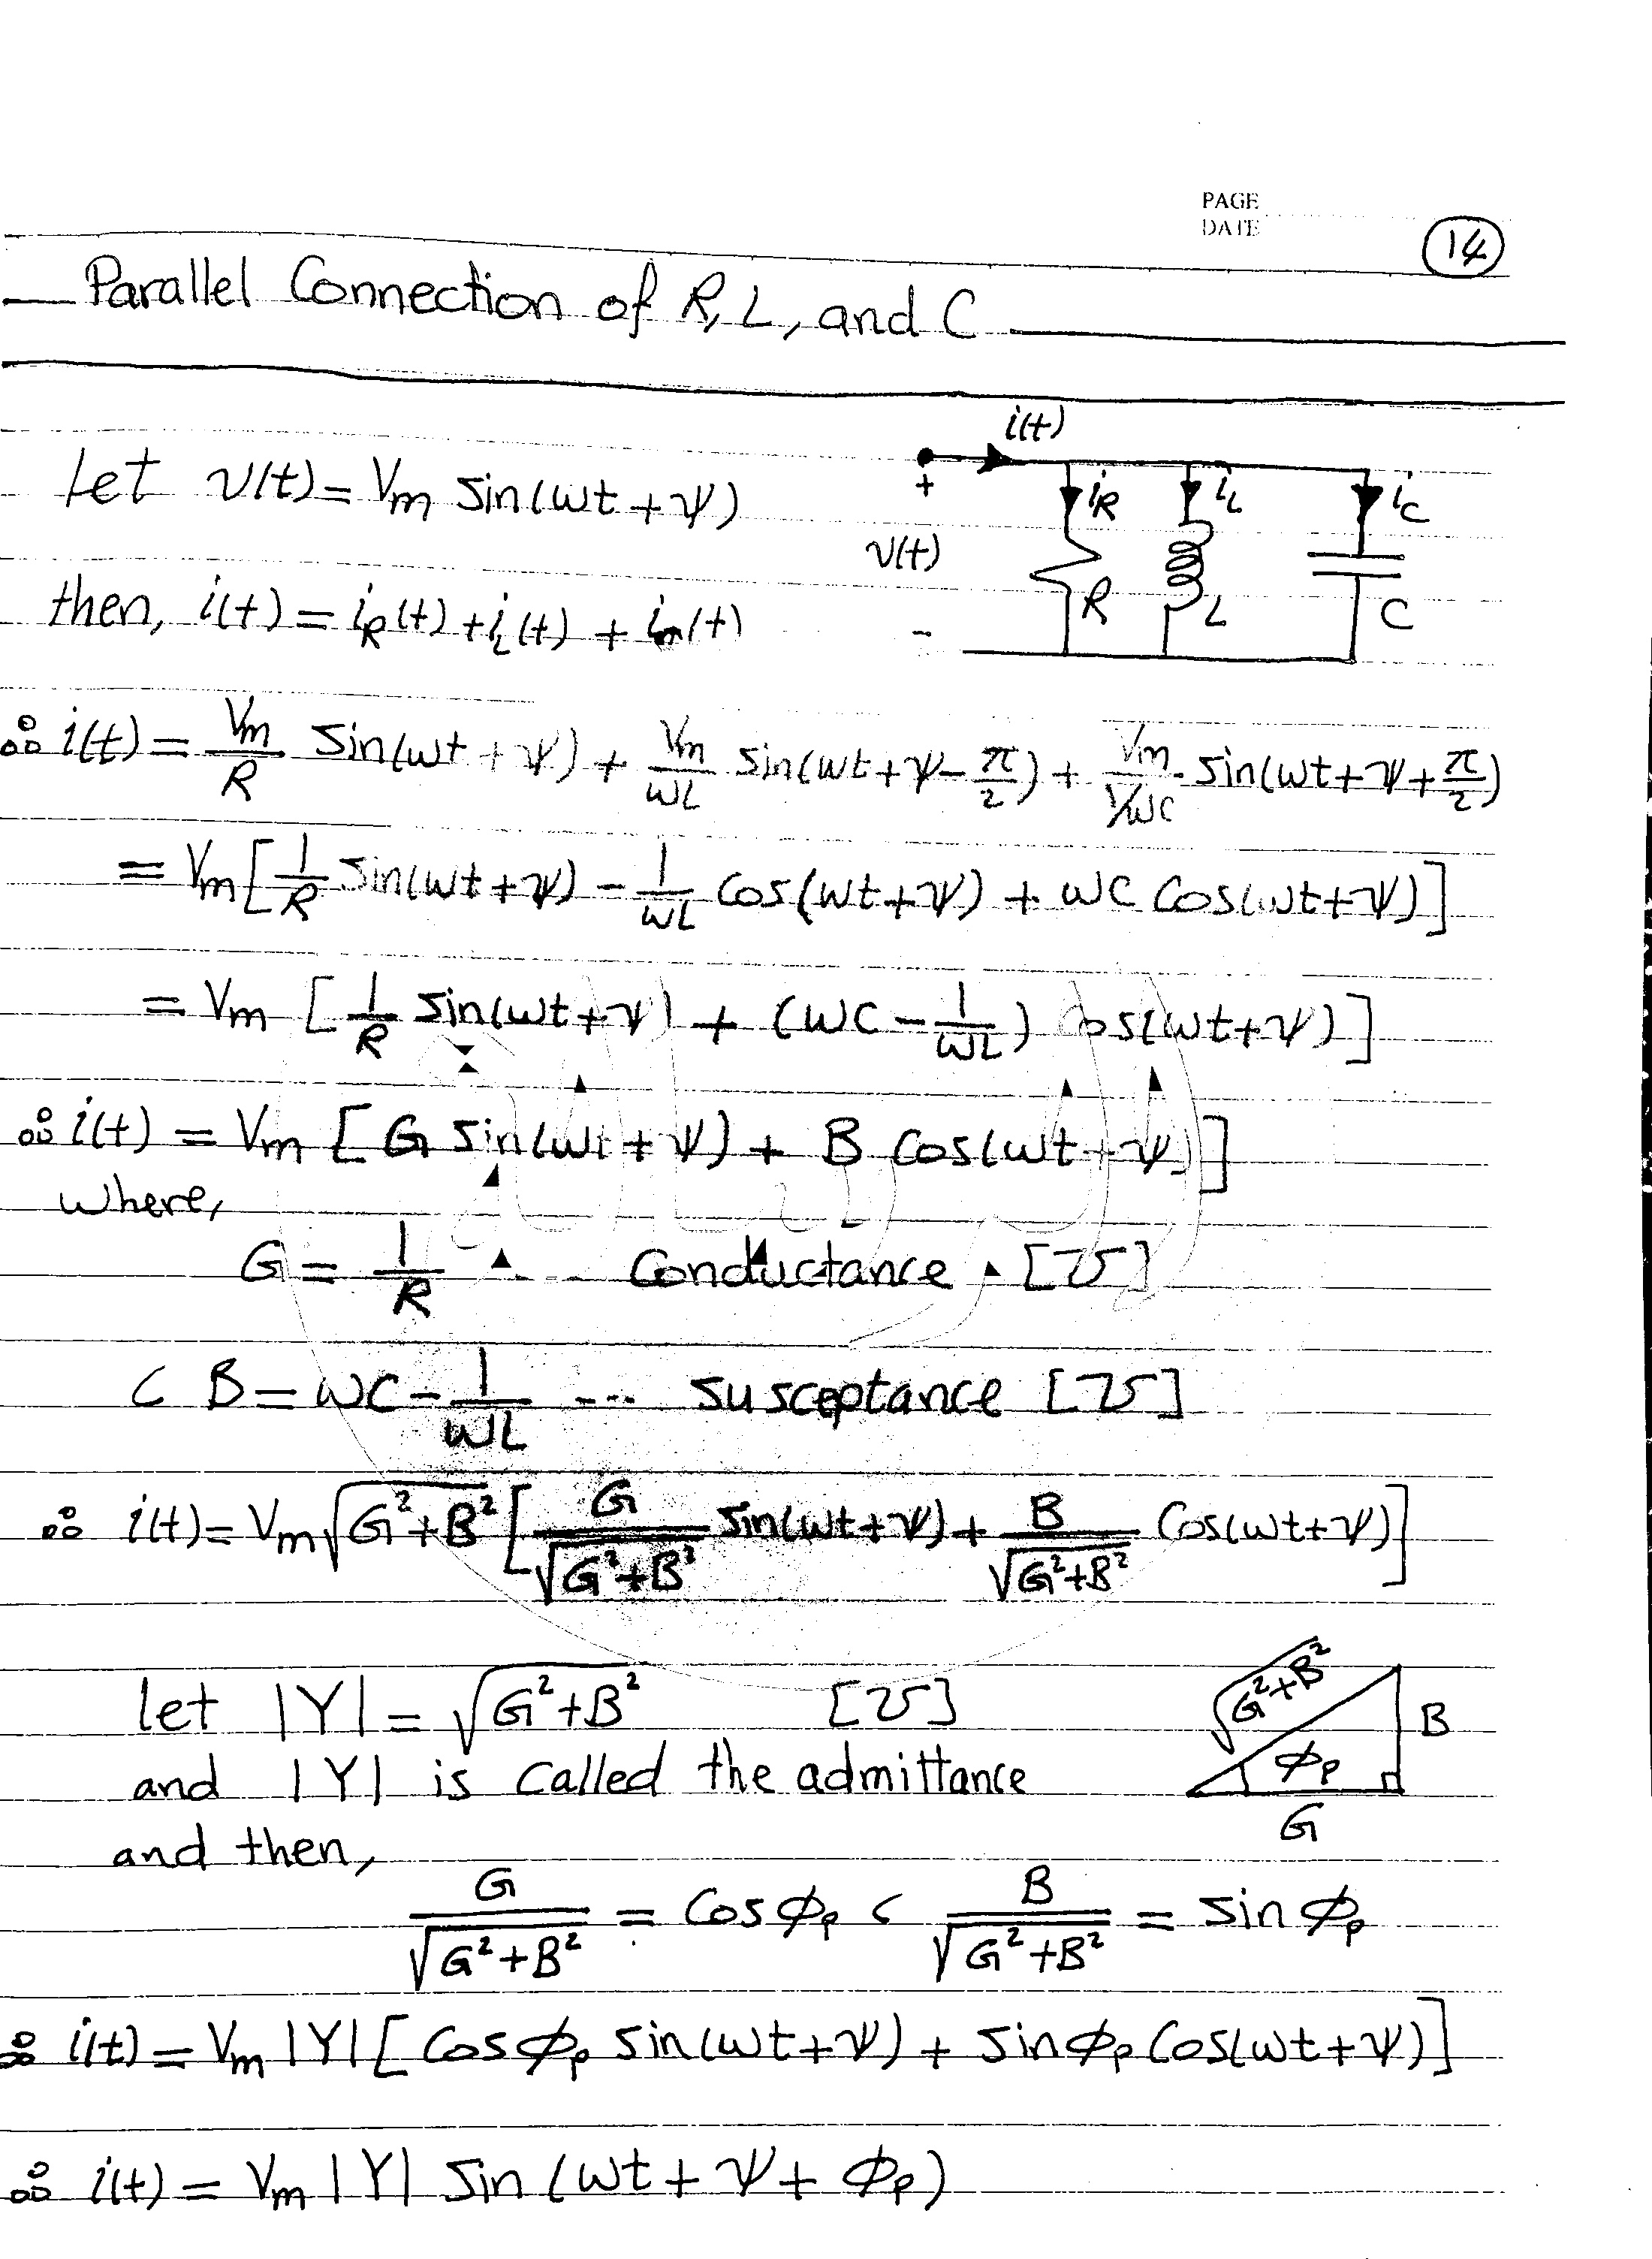 PAGE
DATE
14
Parallel Connection of R, L, and C
Let v(t) = Vm sin(ωt + ψ)
then, i(t) = iR(t) + iL(t) + i(t)
i(t)
+
v(t)
-
iR
iL
iC
R
L
C
∴ i(t) = Vm/R sin(ωt + ψ) + Vm/ωL sin(ωt + ψ - π/2) + Vm/(1/ωC) sin(ωt + ψ + π/2)
= Vm [1/R sin(ωt + ψ) - 1/ωL cos(ωt + ψ) + ωC cos(ωt + ψ)]
= Vm [1/R sin(ωt + ψ) + (ωC - 1/ωL) cos(ωt + ψ)]
∴ i(t) = Vm [G sin(ωt + ψ) + B cos(ωt + ψ)]
where,
G = 1/R ... Conductance, [℧]
‹ B = ωC - 1/ωL ... susceptance [℧]
∴ i(t) = Vm √(G²+B²) [G/√(G²+B²) sin(ωt + ψ) + B/√(G²+B²) cos(ωt + ψ)]
let |Y| = √(G²+B²) [℧]
and |Y| is called the admittance
and then,
√(G²+B²)
B
φp
G
G/√(G²+B²) = cos φp ‹ B/√(G²+B²) = sin φp
∴ i(t) = Vm |Y| [cos φp sin(ωt + ψ) + sin φp cos(ωt + ψ)]
∴ i(t) = Vm |Y| sin(ωt + ψ + φp)